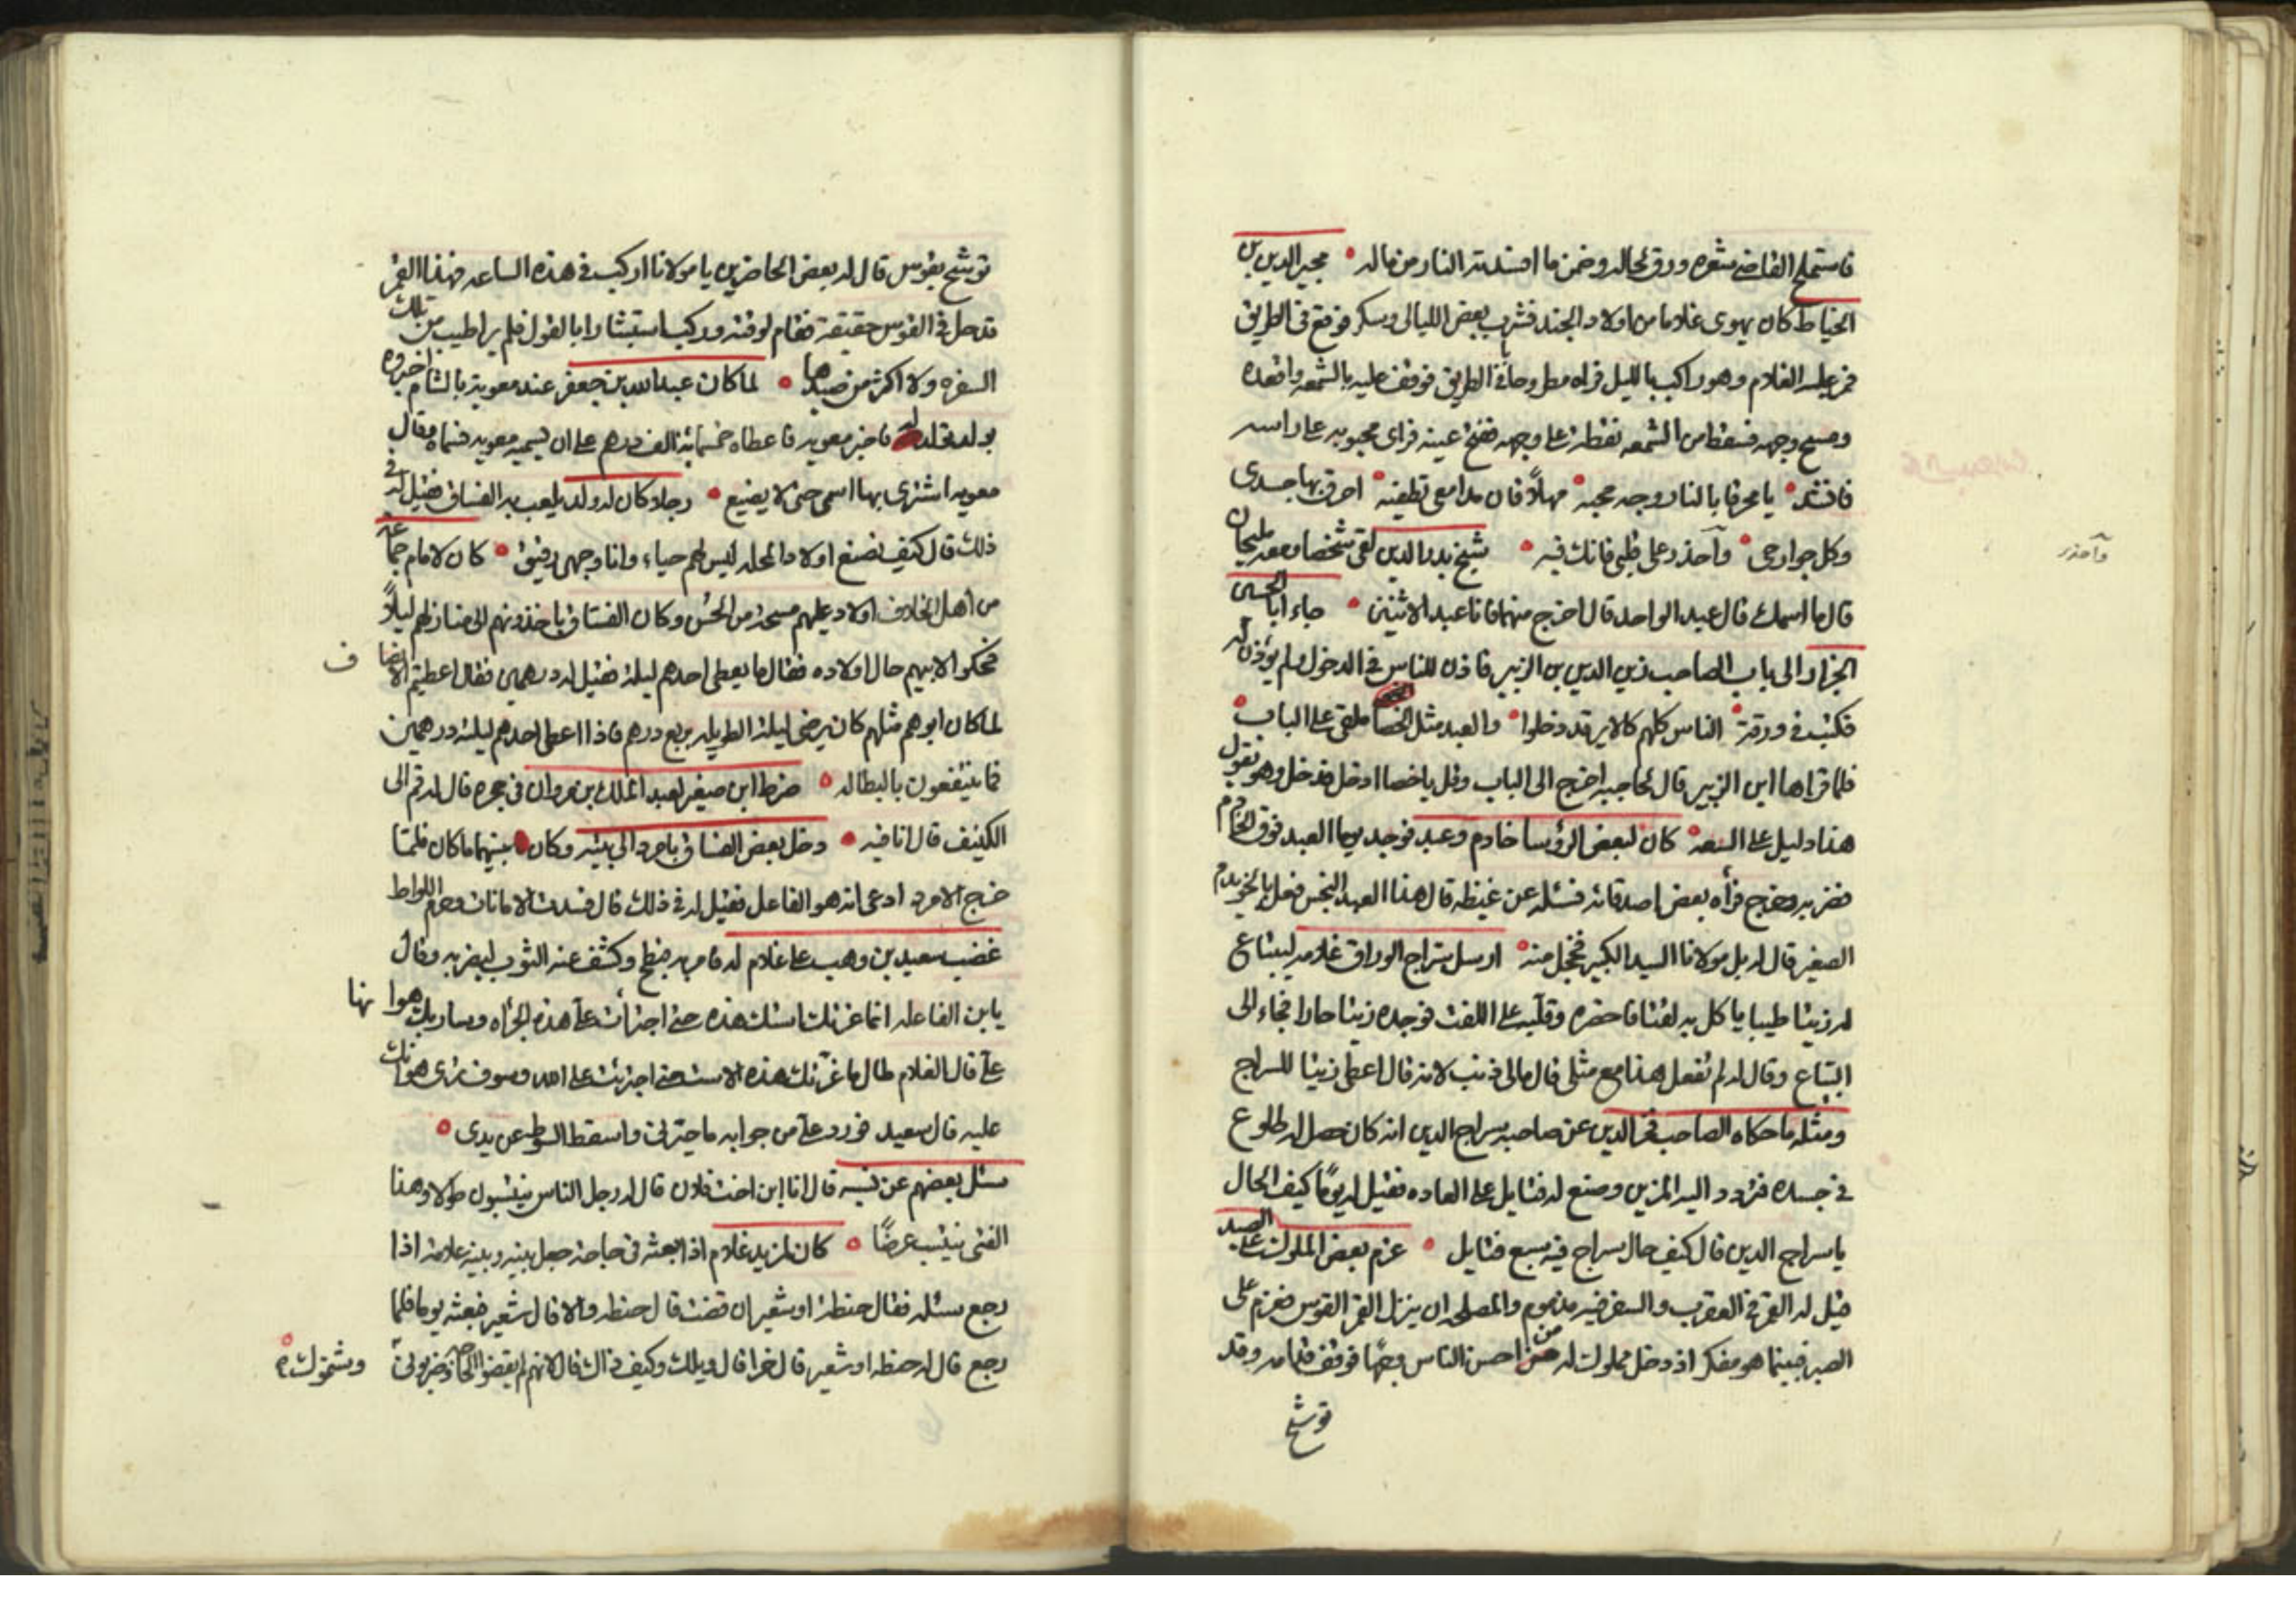 فاستملح القاضي شعره ورق لحاله وضمن ما افسدته النار من ماله مجير الدين بن
الخياط كان يهوى غلاما من اولاد الجند فشرب بعض الليالي وسكر فوقع في الطريق
فمر عليه الغلام وهو راكب بالليل فراه مطروحا في الطريق فوقف عليه بالشمعه واقعده
ومسح وجهه فسقط من الشمعه نقطة على وجهه ففتح عينه فراى محبوبه على راسه
فانشد يا محرقا بالنار وجه محبه مهلاً فان مدامعي تطفيه احرق بها جسدي
وكل جوارحي وآحذر على قلبي فانك فيه شيخ بدر الدين لقي شخصا ومعه مليحان
وآحذر
قال ما اسمك قال عبد الواحد قال اخرج منهما فانا عبد الاثنين جاء ابا الحسين
الجزار الى باب الصاحب زين الدين بن الزبير فاذن للناس في الدخول ولم يؤذن له
فكتب في ورقة الناس كلهم كالاير قد دخلوا والعبد مثل الخصا ملقى على الباب
فلما قراها ابن الزبير قال لحاجبه اخرج الى الباب وقل يا خصا ادخل فدخل وهو يقول
هذا دليل على السعه كان لبعض الرؤسا خادم وعبد فوجد يوما العبد فوق الخادم
فضربه وخرج فرأه بعض اصدقائه فسئله عن غيظه قال هذا العبد النجس فعل بالخويدم
الصغير قال له بل مولانا السيد الكبير فخجل منه ارسل سراج الوراق غلامه ليبتاع
له زيتا طيبا ياكل به لفتا فاحضره وقلبه على اللفت فوجده زيتا حارا فجاء الى
البياع وقال له لم تفعل هذا مع مثلي قال مالي ذنب لانه قال اعطي زيتا للسراج
ومثله ما حكاه الصاحب فخر الدين عن صاحبه سراج الدين انه كان حصل له طلوع
في جسده فتردد اليه المزين وصنع له فتايل على العاده فقيل له يومًا كيف الحال
يا سراج الدين قال كيف حال سراج فيه سبع فتايل عزم بعض الملوك على الصيد
فيل له القمر في العقرب والسفر فيه مذموم والمصلحه ان ينزل القمر القوس فعزم على
الصبر فبينما هو مفكر اذ دخل مملوك له من احسن الناس وجهًا فوقف قدامه وقد
توشح
توشح بقوس قال له بعض الحاضرين يا مولانا اركب في هذه الساعه فهذا القمر
قد حل في القوس حقيقة فقام لوقته وركب استبشارا بالقول فلم ير اطيب من تلك
السفره ولا اكثر من صيدها لما كان عبد الله بن جعفر عند معوية بالشام اخبروه
بولد قد ولد له فاخبر معويه فاعطاه خمسمائة الف درهم على ان يسميه معويه فسماه وقال
معويه اشترى بها اسمي حتى لا يضيع رجلا كان له ولد يلعب به الفساق فقيل له في
ذلك قال كيف نصنع اولاد المحله ليس لهم حياء وانا وجهي رقيق كان لامام جماعة
من اهل الخلاف اولاد عليهم مسحة من الحسن وكان الفساق ياخذونهم الى منازلهم ليلاً
فحكوا لابيهم حال اولاده فقال ما يعطى احدهم ليلة فقيل له درهمين فقال اعطيتم الانصاف
لما كان ابوهم مثلهم كان يرضى ليلة الطويله بربع درهم فاذا اعطى احدهم ليلة درهمين
فما ينتفعون بالبطاله ضرط ابن صغير لعبد الملك بن مروان في حجره قال له قم الى
الكنيف قال انا فيه دخل بعض الفساق بامرد الى بيته وكان بينهما ما كان فلما
خرج الامرد ادعى انه هو الفاعل فقيل له في ذلك قال فسدت الامانات وحرم اللواط
غضب سعيد بن وهب على غلام له فامر به فبطح وكشف عنه الثوب ليضربه وقال
يا ابن الفاعله انما غرتك استك هذه حتى اجترأت على هذه الجرأه وساريك هوانها
على قال الغلام طال ما غرتك هذه الاست حتى اجترئت على الله وسوف ترى هوانك
عليه قال سعيد فورد على من جوابه ما حيرني واسقط السوط من يدي
سئل بعضهم عن نسبه قال انا ابن اخت فلان قال له رجل الناس ينتسبون طولا وهذا
الفتى ينتسب عرضًا كان لمزيد غلام اذا بعثه في حاجة جعل بينه وبينه علامة اذا
رجع سئله فقال حنطة او شعير ان قضت قال حنطه والا قال شعير فبعثه يوما فلما
رجع قال له حنطه او شعير قال خرا قال ويلك وكيف ذاك قال لانهم لم يقضوا الحاجة وضربوني وشتموك